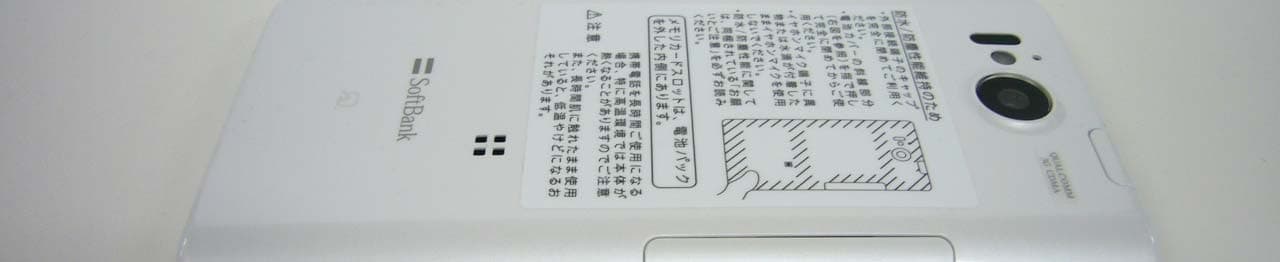 防水/防塵性能維持のため
・外部接続端子のキャップ
を完全に閉めてご利用く
ださい。
・電池カバーの斜線部分
(右図を参照)を指で押し
て完全に閉めてからご使
用ください。
・イヤホンマイク端子に異
物または水滴が付着した
ままイヤホンマイクを使用
しないでください。
・防水/防塵性能に関して
は、同梱されている「お願
いとご注意」を必ずお読み
ください。
メモリカードスロットは、電池パック
を外した内側にあります。
⚠注意
携帯電話を長時間ご使用になる
場合、特に高温環境では本体が
熱くなることがありますのでご注意
ください。
また、長時間肌に触れたまま使用
していると、低温やけどになるお
それがあります。
SoftBank
QUALCOMM
3G CDMA